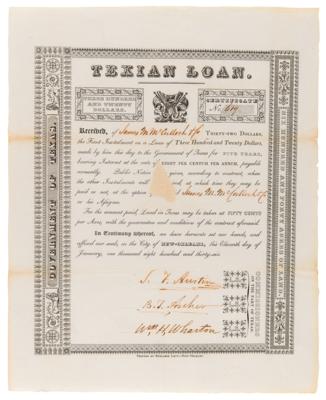 TEXIAN LOAN.
THREE HUNDRED
AND TWENTY
DOLLARS.
CERTIFICATE
No.
Received, of James M. McCulloch THIRTY-TWO DOLLARS,
the First Instalment on a Loan of Three Hundred and Twenty Dollars,
made by him this day to the Government of Texas for FIVE YEARS,
bearing interest at the rate of EIGHT PER CENTUM PER ANNUM, payable
annually. Public Notice given, according to contract, when
the other Instalments will at which time they may be
paid or not, at the option James M. McCulloch
or his Assigns.
For the amount paid, Land in Texas may be taken at FIFTY CENTS
per Acre, with the reservation and conditions of the contract aforesaid.
In Testimony whereof, we have hereunto set our hands, and
affixed our seals, in the City of NEW-ORLEANS, the Eleventh day of
January, one thousand eight hundred and thirty-six.
S. F. Austin
B. T. Archer
Wm H. Wharton
COMMISSIONERS
GOVERNMENT OF TEXAS.
SIX HUNDRED AND FORTY ACRES OF LAND.